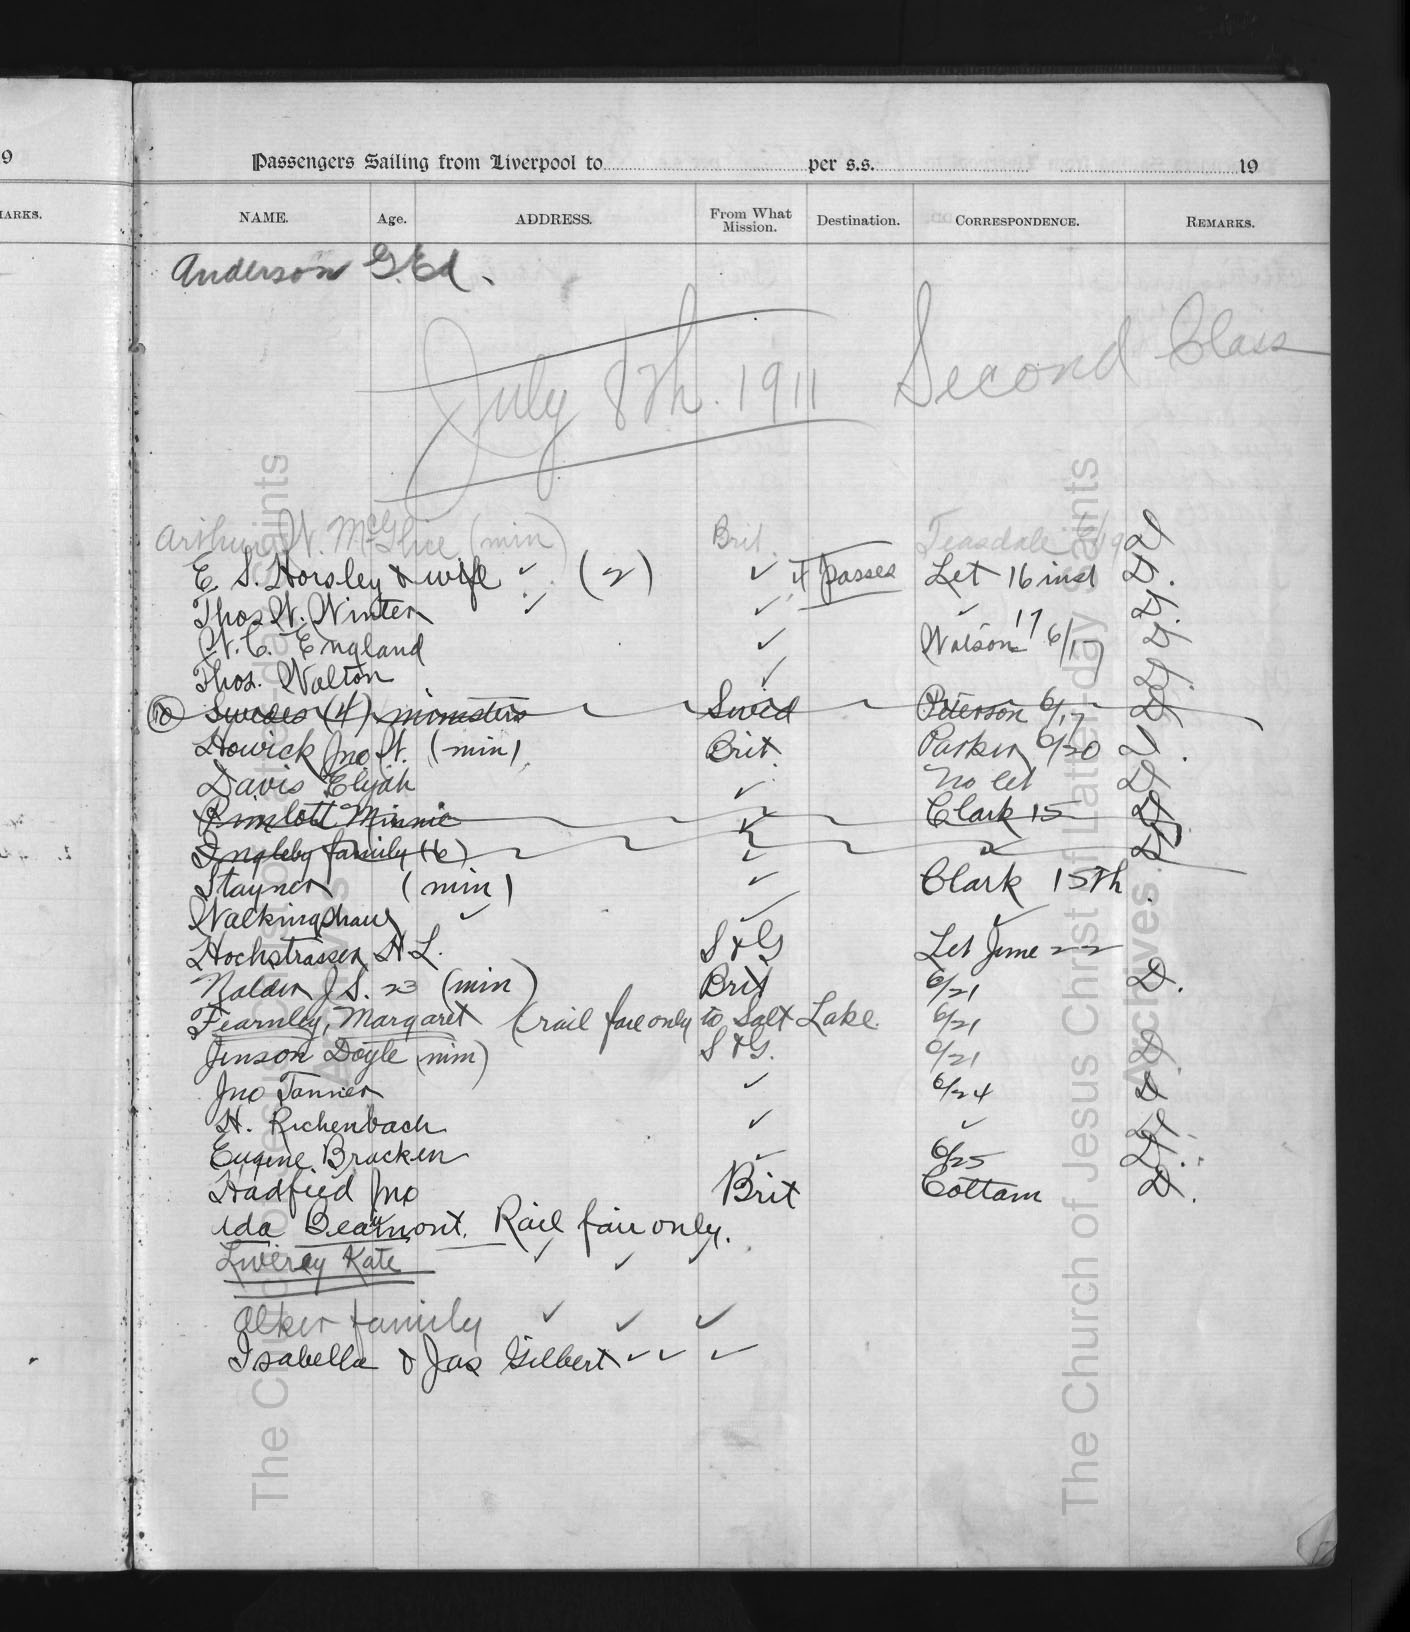 9
MARKS.
Passengers Sailing from Liverpool to per s.s. 19
NAME. Age. ADDRESS. From What Mission. Destination. CORRESPONDENCE. REMARKS.
Anderson G. Ed.
July 8th. 1911 Second Class
Arthur W. (min) Brit. Teasdale
E. S. Horsley & wife ✓ (2) ✓ 4 passes Let 16 inst D.
Thos W. Winter ✓ ✓ ✓ 17
W. C. England ✓ Watson 6/17
Thos. Walton ✓
10 Swedes (4) ministers Swed Peterson 6/17
Howick Jno W. (min) Brit. Parker 6/20
Davis Elijah ✓ No let
Rimlott Minnie ✓ Clark 15
Ingleby family (6) ✓
Stayner (min) ✓ Clark 15th
Walkingshaw ✓ ✓ ✓
Hochstrasser H L. S & G Let June 22
Nalder J. S. 23 (min) Brit 6/21 D.
Fearnley, Margaret (rail fare only to Salt Lake 6/21
Jenson Doyle (min) S & G. 6/21
Jno Tanner ✓ 6/24
H. Richenbach ✓ ✓
Eugene Bracken ✓ 6/25
Hadfied Jno Brit Cottam D.
Ida Beaumont. Rail fair only.
Kate ✓ ✓ ✓
Alker family ✓ ✓ ✓
Isabella & Jas Gilbert ✓ ✓ ✓
The Church of Jesus Christ of Latter-day Saints
Archives
The Church of Jesus Christ of Latter-day Saints
Archives